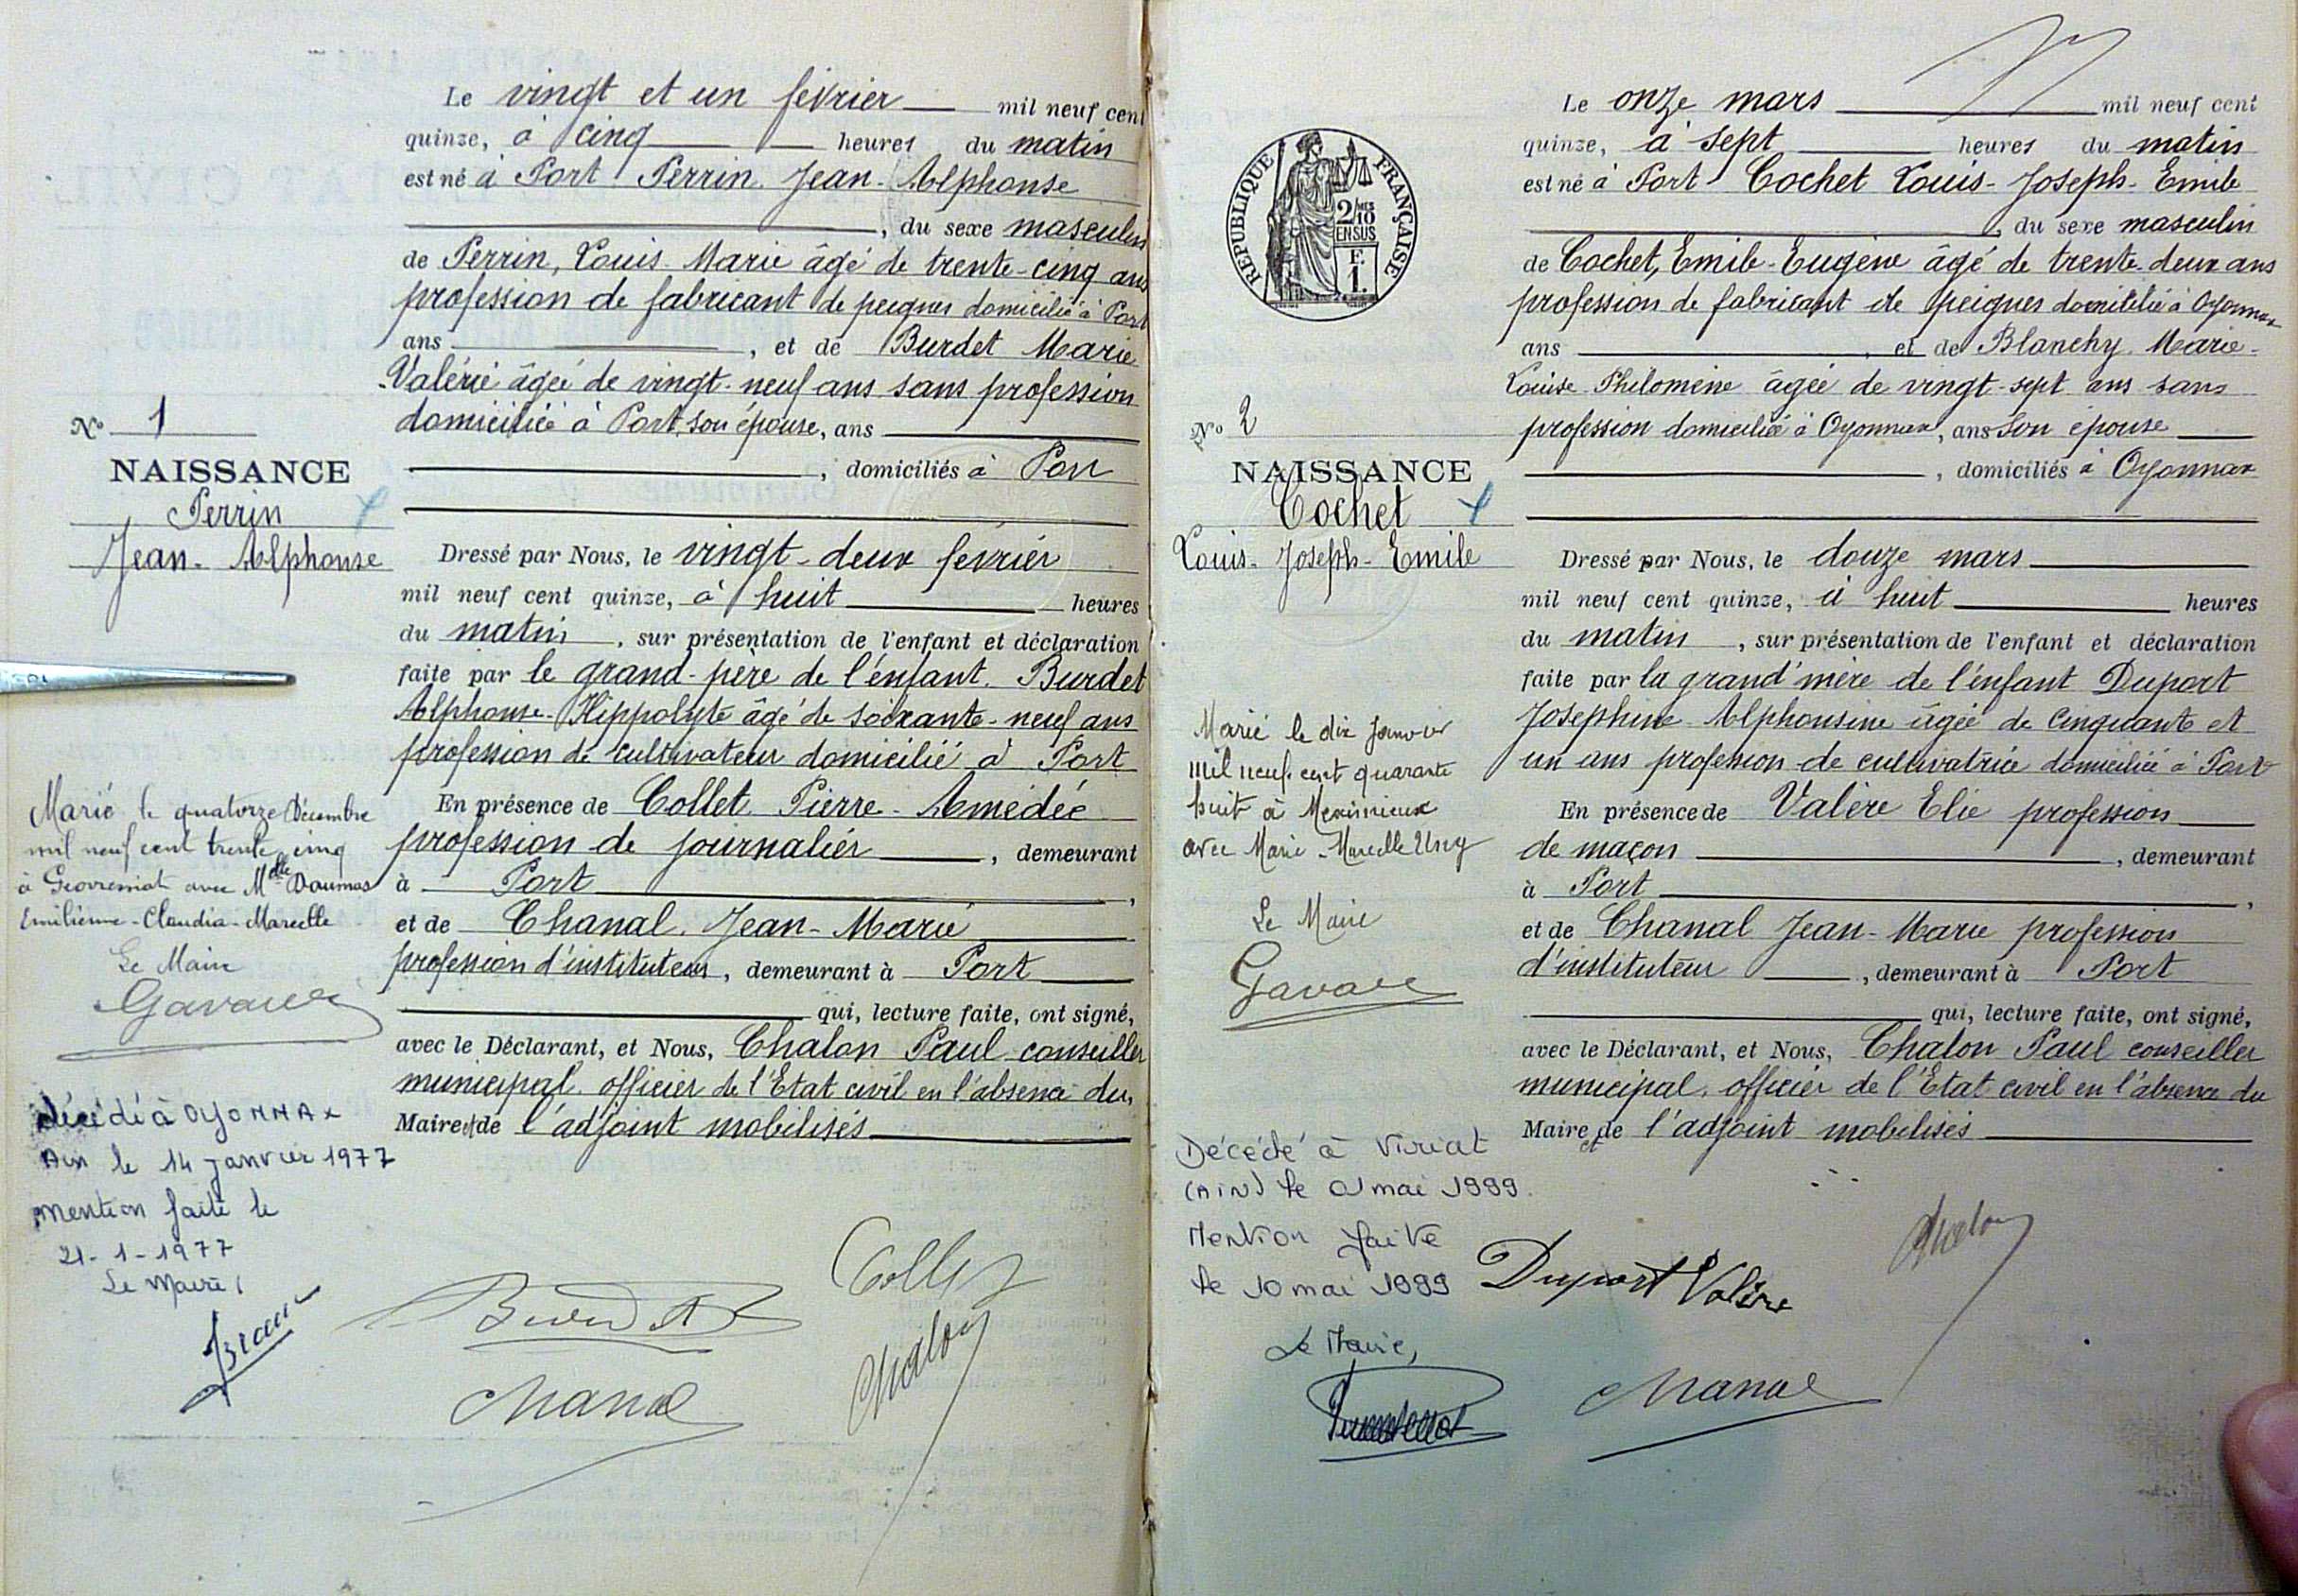 Le vingt et un février mil neuf cent
quinze, à cinq heures du matin
est né à Port Perrin Jean-Alphonse
, du sexe masculin
de Perrin, Louis Marie âgé de trente-cinq ans
profession de fabricant de peignes domicilié à Port
ans , et de Burdet Marie
Valérie âgée de vingt-neuf ans sans profession
domiciliée à Port, son épouse, ans
, domiciliés à Port
Dressé par Nous, le vingt-deux février
mil neuf cent quinze, à huit heures
du matin , sur présentation de l'enfant et déclaration
faite par le grand-père de l'enfant Burdet
Alphonse-Hippolyte âgé de soixante-neuf ans
profession de cultivateur domicilié à Port
En présence de Collet Pierre-Amédée
profession de journalier , demeurant
à Port ,
et de Chanal Jean-Marie
profession d'instituteur , demeurant à Port
qui, lecture faite, ont signé,
avec le Déclarant, et Nous, Chalon Paul conseiller
municipal officier de l'Etat civil en l'absence du
Maire et de l'adjoint mobilisés
Collet
Burdet
Chalon
Chanal
N° 1
NAISSANCE
Perrin
Jean-Alphonse
Marié le quatorze Décembre
mil neuf cent trente cinq
à Geovreissiat avec Melle Daumas
Emilienne-Claudia-Marcelle
Le Maire
décédé à OYONNAX
Ain le 14 janvier 1977
mention faite le
21-1-1977
Le Maire,
Le onze mars mil neuf cent
quinze, à sept heures du matin
est né à Port Cochet Louis-Joseph-Emile
, du sexe masculin
de Cochet, Emile-Eugène âgé de trente-deux ans
profession de fabricant de peignes domicilié à Oyonnax
ans , et de Blanchy Marie-
Louise Philomène âgée de vingt-sept ans sans
profession domiciliée à Oyonnax, ans son épouse
, domiciliés à Oyonnax
Dressé par Nous, le douze mars
mil neuf cent quinze, à huit heures
du matin , sur présentation de l'enfant et déclaration
faite par la grand'mère de l'enfant Duport
Joséphine Alphonsine âgée de cinquante et
un ans profession de cultivatrice domiciliée à Port
En présence de Valère Elie profession
de maçon , demeurant
à Port ,
et de Chanal Jean-Marie profession
d'instituteur , demeurant à Port
qui, lecture faite, ont signé,
avec le Déclarant, et Nous, Chalon Paul conseiller
municipal, officier de l'Etat civil en l'absence du
Maire et de l'adjoint mobilisés
Chalon
Duport Valère
Chanal
REPUBLIQUE FRANÇAISE
2/10 MES
EN SUS
F.
1.
N° 2
NAISSANCE
Cochet
Louis-Joseph-Emile
Marié le dix Janvier
mil neuf cent quarante
huit à Meximieux
avec Marie-Marcelle
Le Maire
Décédé à Viriat
(AIN) le 01 mai 1999.
Mention faite
le 10 mai 1999
Le Maire,